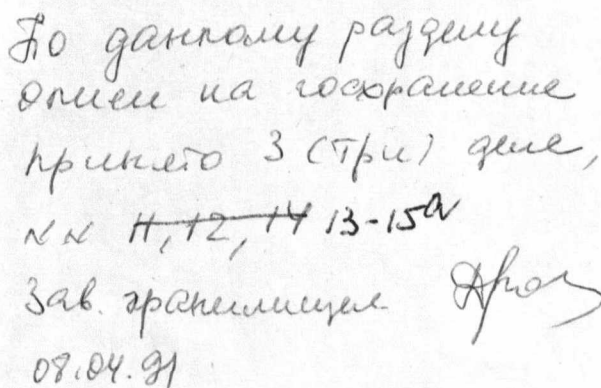 По данному разделу
описи на госхранение
принято 3 (три) дела,
№№ 11, 12, 14 13-15а
Зав. хранилищем
08.04.91